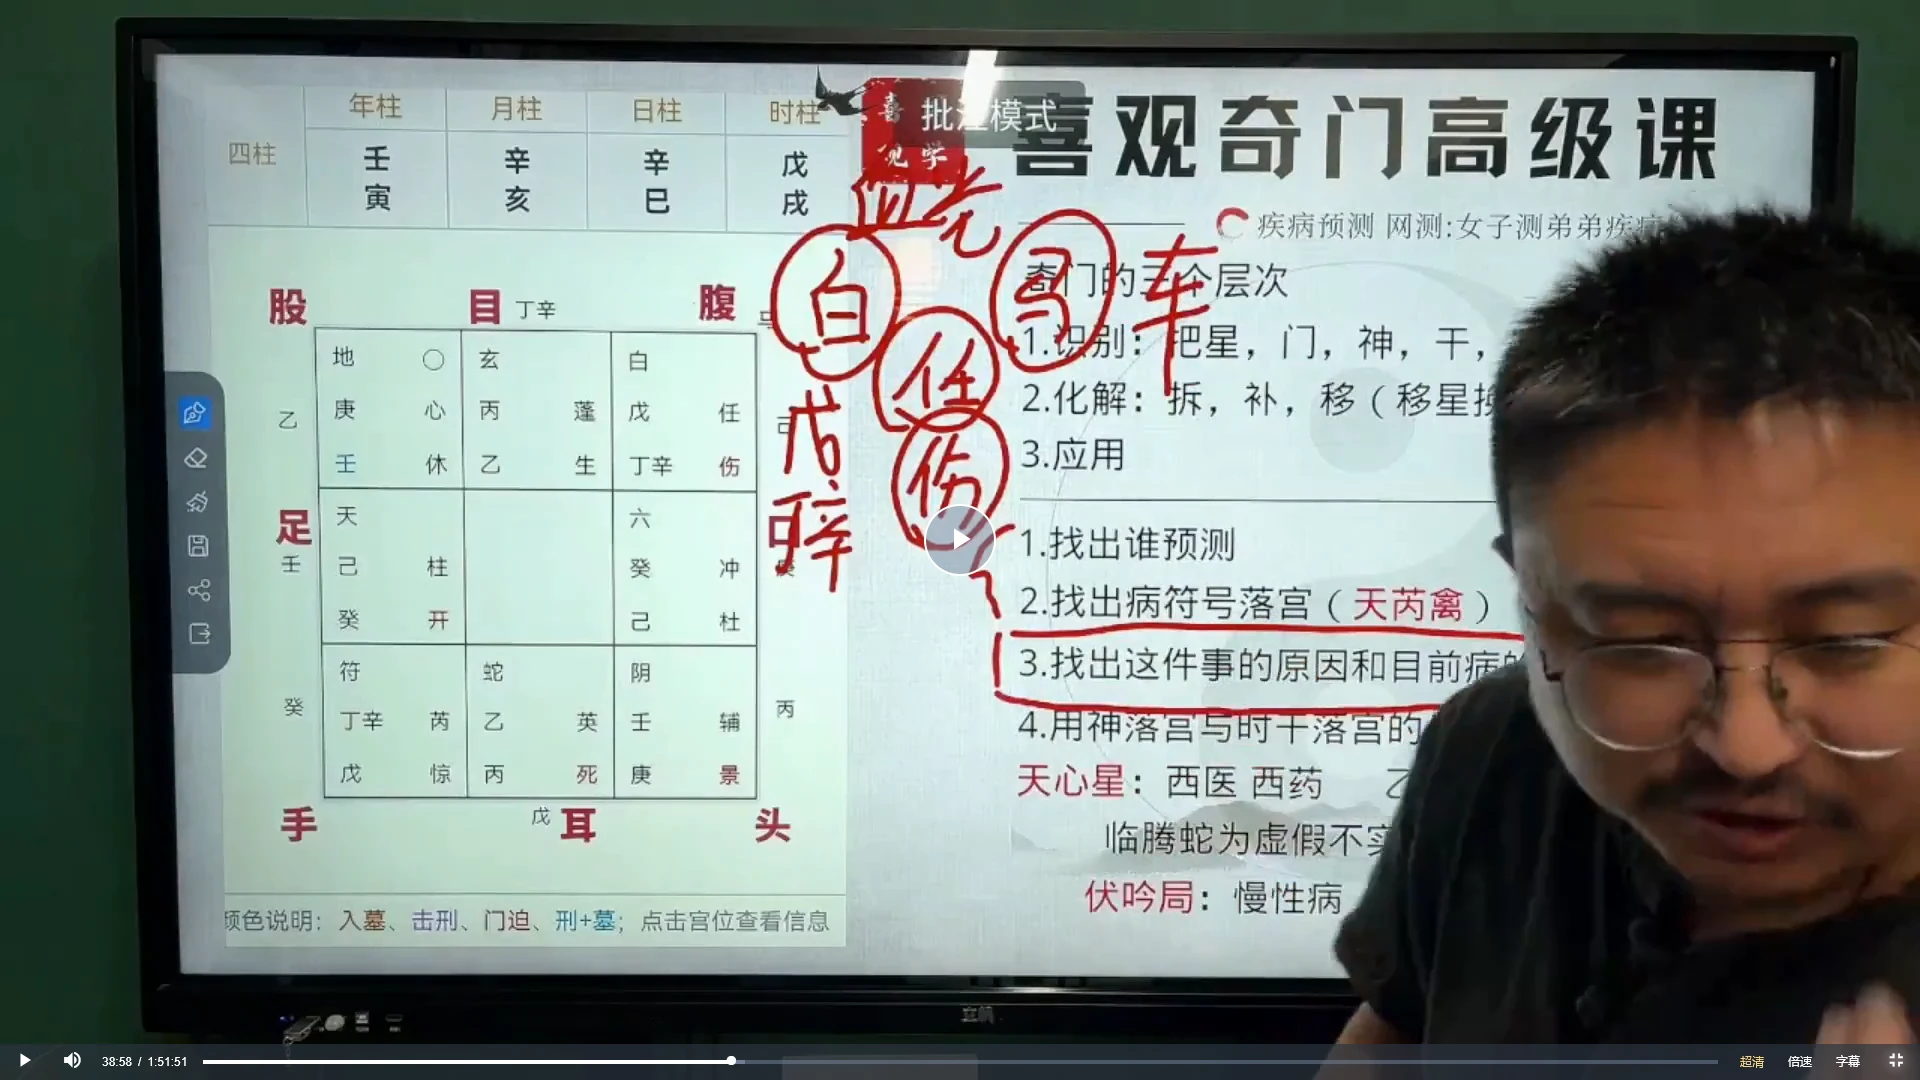 年柱 月柱 日柱 时柱
四柱
壬 辛 辛 戊
寅 亥 巳 戌
批注模式
喜观奇门高级课
疾病预测 网测:女子测弟弟疾病
奇门的三个层次
1.识别：把星，门，神，干，
2.化解：拆，补，移（移星换
3.应用
1.找出谁预测
2.找出病符号落宫（天芮禽）
3.找出这件事的原因和目前病的
4.用神落宫与时干落宫的
天心星：西医 西药 乙
临腾蛇为虚假不实
伏吟局：慢性病
血光
白 马 车
任
戊 伤
辛
股 目 丁辛 腹
地 〇 玄 白
乙 庚 心 丙 蓬 戊 任
壬 休 乙 生 丁辛 伤
足 天 六
壬 己 柱 癸 冲 庚
癸 开 己 杜
符 蛇 阴
癸 丁辛 芮 乙 英 壬 辅 丙
戊 惊 丙 死 庚 景
手 戊 耳 头
颜色说明：入墓、击刑、门迫、刑+墓；点击宫位查看信息
38:58 / 1:51:51
超清 倍速 字幕